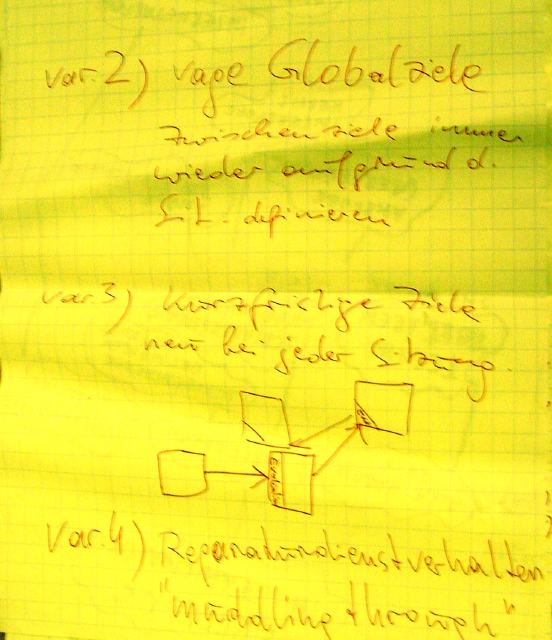 var. 2) vage Globalziele
Zwischenziele immer
wieder aufgrund d.
Sit. definieren
var. 3) Kurzfristige Ziele
neu bei jeder Sitzung.
var. 4) Reparaturdienstverhalten
"muddling through"